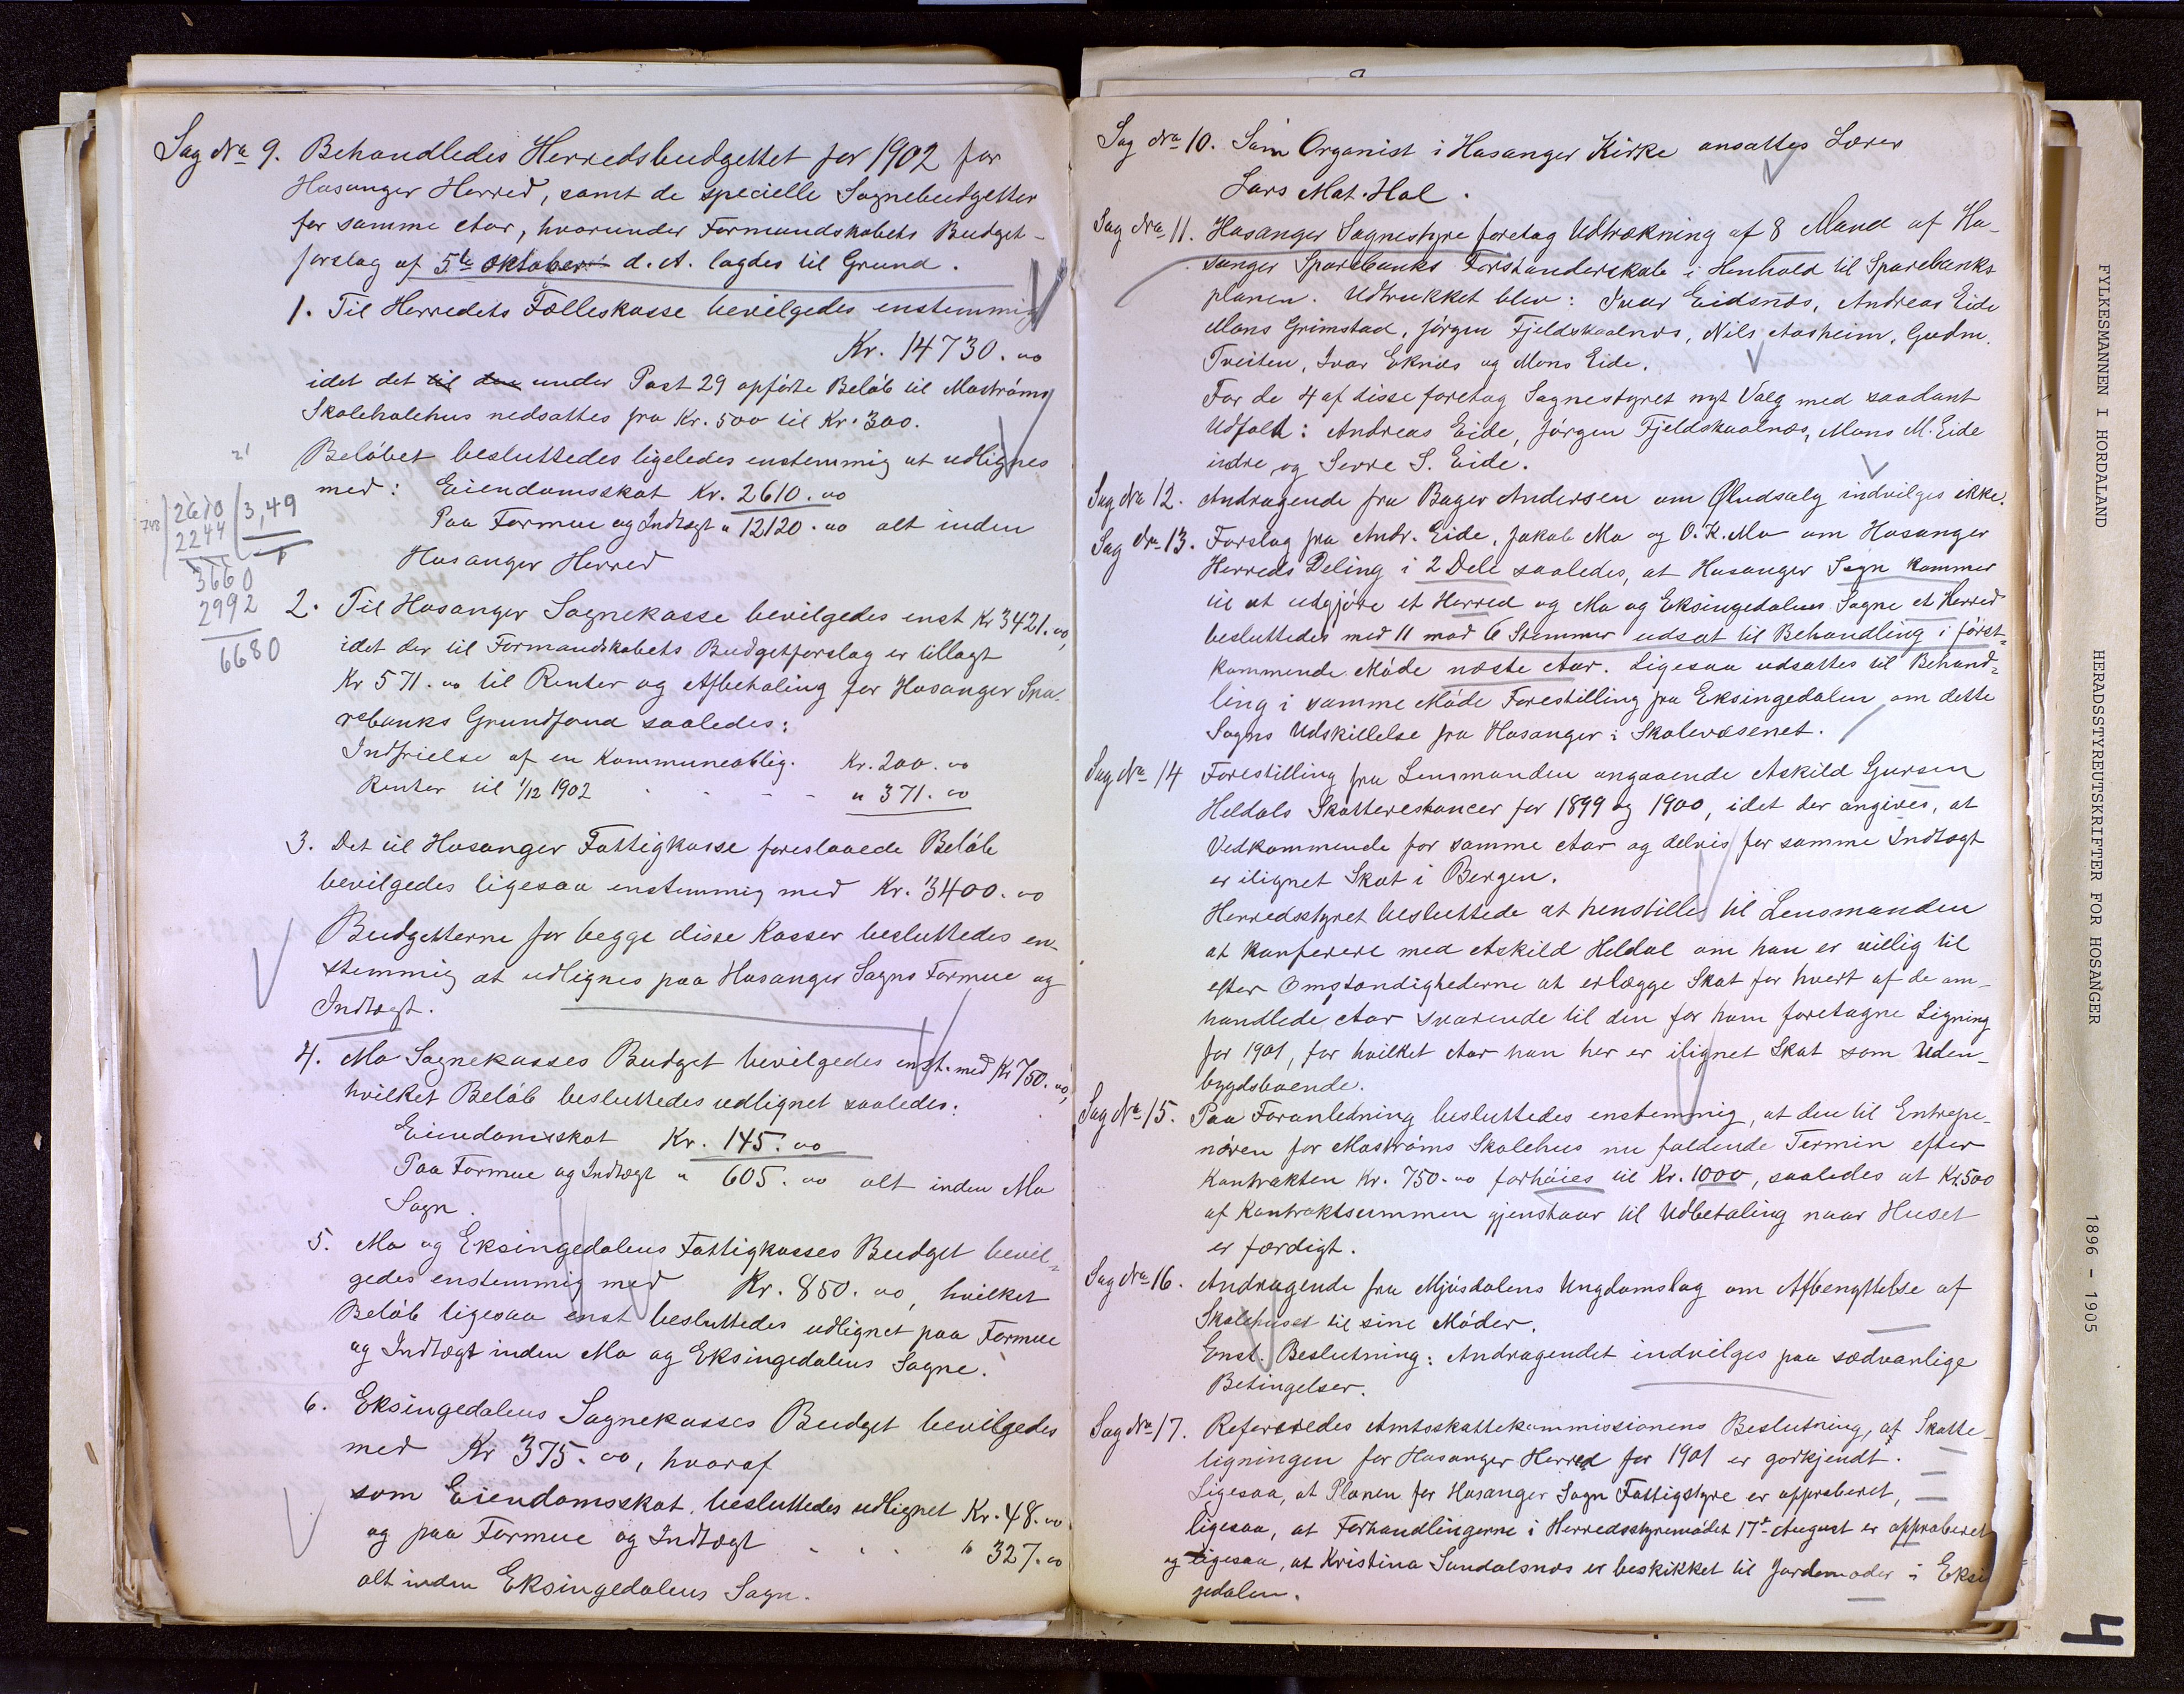 Sag No 9. Behandledes Herredsbudgettet for 1902 for
Hosanger Herred, samt de specielle Sognebudgetter
for samme Aar, hvorunder Formandskabets Budget-
forslag af 5te Oktober d.A. lagdes til Grund.
1. Til Herredets Fælleskasse bevilgedes enstemmig
Kr. 14730.00
idet det til den under Post 29 opførte Beløb til Mostrøms
Skolehus nedsattes fra Kr. 500 til Kr. 300.
Beløbet besluttedes ligeledes enstemmig at udlignes
med: Eiendomsskat Kr. 2610.00
Paa Formue og Indtægt " 12120.00 alt inden
Hosanger Herred
748 2610 3,49
2244
3660
2992
6680
2. Til Hosanger Sognekasse bevilgedes enst Kr 3421.00,
idet der til Formandskabets Budgetforslag er tillagt
Kr 571.00 til Renter og Afbetaling for Hosanger Spa-
rebanks Grundfond saaledes:
Indfrielse af en Kommuneoblig. Kr. 200.00
Renter til 1/12 1902 - - - - " 371.00
3. Det til Hosanger Fattigkasse foreslaaede Beløb
bevilgedes ligesaa enstemmig med Kr. 3400.00
Budgetterne for begge disse Kasser besluttedes en-
stemmig at udlignes paa Hosanger Sogns Formue og
Indtægt.
4. Mo Sognekasses Budget bevilgedes enst. med Kr 750.00,
hvilket Beløb besluttedes udlignet saaledes:
Eiendomsskat Kr. 145.00
Paa Formue og Indtægt " 605.00 alt inden Mo
Sogn.
5. Mo og Eksingedalens Fattigkasses Budget bevil-
gedes enstemmig med Kr. 850.00, hvilket
Beløb ligesaa enst besluttedes udlignet paa Formue
og Indtægt inden Mo og Eksingedalens Sogne.
6. Eksingedalens Sognekasses Budget bevilgedes
med Kr 375.00, hvoraf
som Eiendomsskat besluttedes udlignet Kr. 48.00
og paa Formue og Indtægt - - - " 327.00
alt inden Eksingedalens Sogn.
Sag No 10. Som Organist i Hosanger Kirke ansattes Lærer
Lars Mat. Hol.
Sag No 11. Hosanger Sognestyre foretog Udtrækning af 8 Mand af Ho-
sanger Sparebanks Forstanderskab i Henhold til Sparebanks
planen. Udtrukket blev: Ivar Eidsnes, Andreas Eide
Mons Grimstad, Jørgen Fjeldskaalnes, Nils Aasheim, Gudm.
Tveiten, Ivar Eknes og Mons Eide.
For de 4 af disse foretog Sognestyret nyt Valg med saadant
Udfald: Andreas Eide, Jørgen Fjeldskaalnes, Mons M. Eide
indre og Sevre S. Eide.
Sag No 12. Andragende fra Bager Andersen om Øludsalg indvilges ikke.
Sag No 13. Forslag fra Andr. Eide, Jakob Mo og O. K. Mo om Hosanger
Herreds Deling i 2 Dele saaledes, at Hosanger Sogn kommer
til at udgjøre et Herred og Mo og Eksingedalens Sogne et Herred
besluttedes med 11 mod 6 Stemmer udsat til Behandling i først-
kommende Møde næste Aar. Ligesaa udsattes til Behand-
ling i samme Møde Forestilling fra Eksingedalen om dette
Sogns Udskillelse fra Hosanger i Skolevæsenet.
Sag No 14 Forestilling fra Lensmanden angaaende Askild
Heldals Skatterestancer for 1899 og 1900, idet der angives, at
Vedkommende for samme Aar og delvis for samme Indtægt
er ilignet Skat i Bergen.
Herredsstyret besluttede at henstille til Lensmanden
at konferere med Askild Heldal om han er villig til
efter Omstændighederne at erlægge Skat for hvert af de om-
handlede Aar svarende til den for ham foretagne Ligning
for 1901, for hvilket Aar han her er ilignet Skat som Uden-
bygdsboende.
Sag No 15. Paa Foranledning besluttedes enstemmig, at den til Entrepe-
nøren for Mostrøms Skolehus nu faldende Termin efter
Kontrakten Kr. 750.00 forhøies til Kr. 1000, saaledes at Kr. 500
af Kontraktsummen gjenstaar til Udbetaling naar Huset
er færdigt.
Sag No 16. Andragende fra Mjøsdalens Ungdomslag om Afbenyttelse af
Skolehuset til sine Møder.
Enst. Beslutning: Andragendet indvilges paa sædvanlige
Betingelser.
Sag No 17. Refereredes Amtsskattekommissionens Beslutning, at Skatte-
ligningen for Hosanger Herred for 1901 er godkjendt.
Ligesaa, at Planen for Hosanger Sogn Fattigstyre er approberet,
ligesaa, at Forhandlingerne i Herredsstyremødet 17de August er approberet
og ligesaa, at Kristina Sandalsnes er beskikket til Jordemoder i Eksi
gedalen.
FYLKESMANNEN I HORDALAND HERADSSTYREUTSKRIFTER FOR HOSANGER 1896 - 1905
4